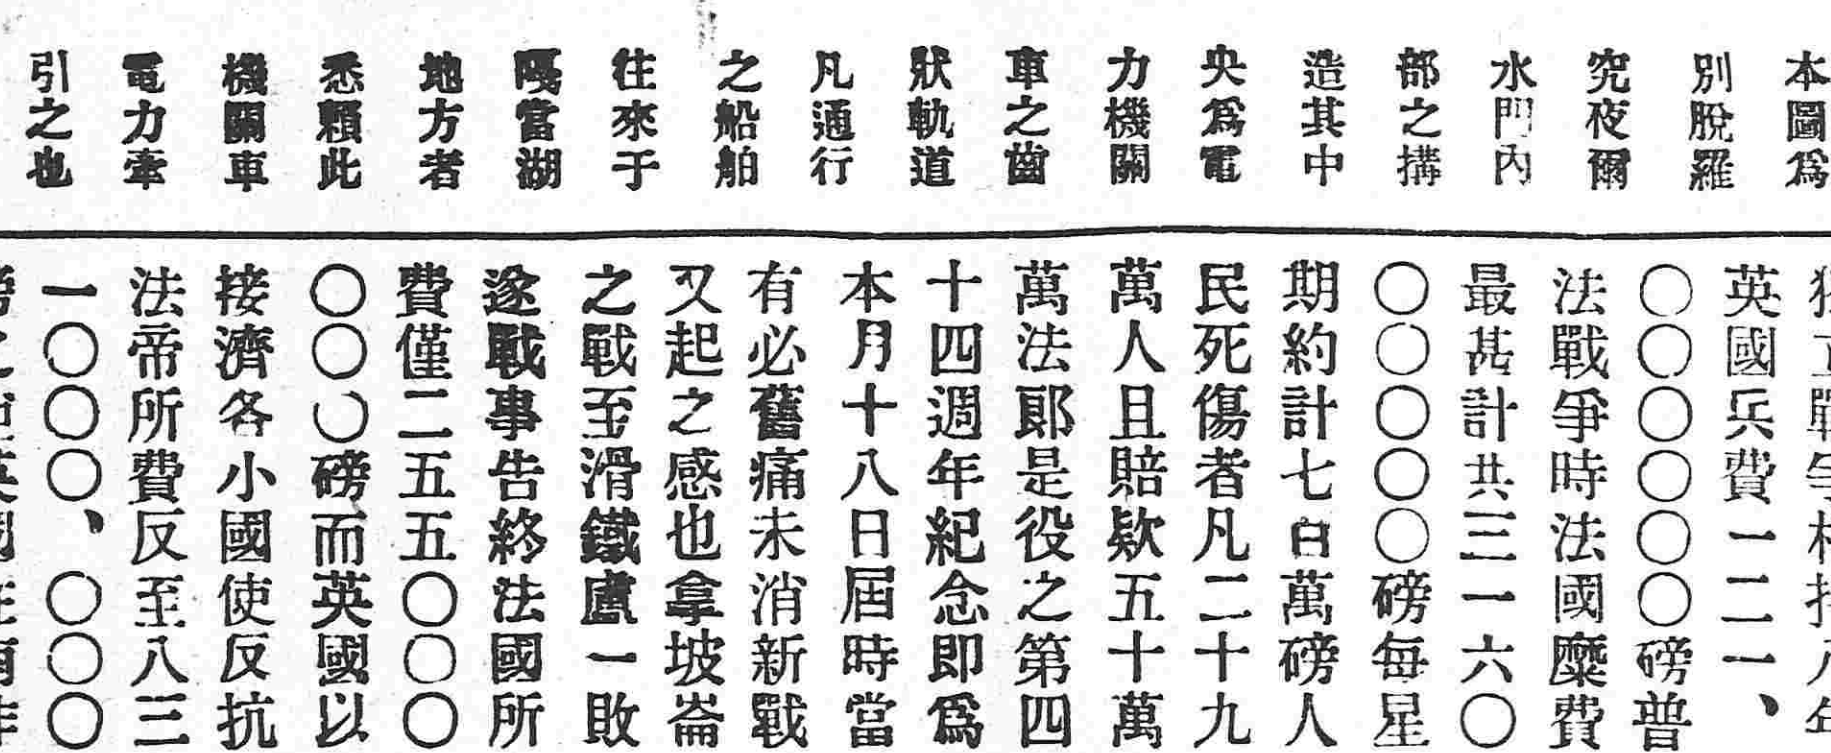 本圖爲
別脫羅
究夜爾
水門內
部之搆
造其中
央爲電
力機關
車之齒
狀軌道
凡通行
之船舶
往來于
嘎當湖
地方者
悉賴此
機關車
電力牽
引之也
戰爭
英國兵費一二一、
〇〇〇〇〇〇磅普
法戰爭時法國糜費
最甚計共三一六〇
〇〇〇〇〇磅每星
期約計七百萬磅人
民死傷者凡二十九
萬人且賠欵五十萬
萬法郎是役之第四
十四週年紀念即爲
本月十八日屆時當
有必舊痛未消新戰
又起之感也拿坡崙
之戰至滑鐵盧一敗
遂戰事告終法國所
費僅二五五〇〇〇
〇〇〇磅而英國以
接濟各小國使反抗
法帝所費反至八三
一〇〇〇、〇〇〇